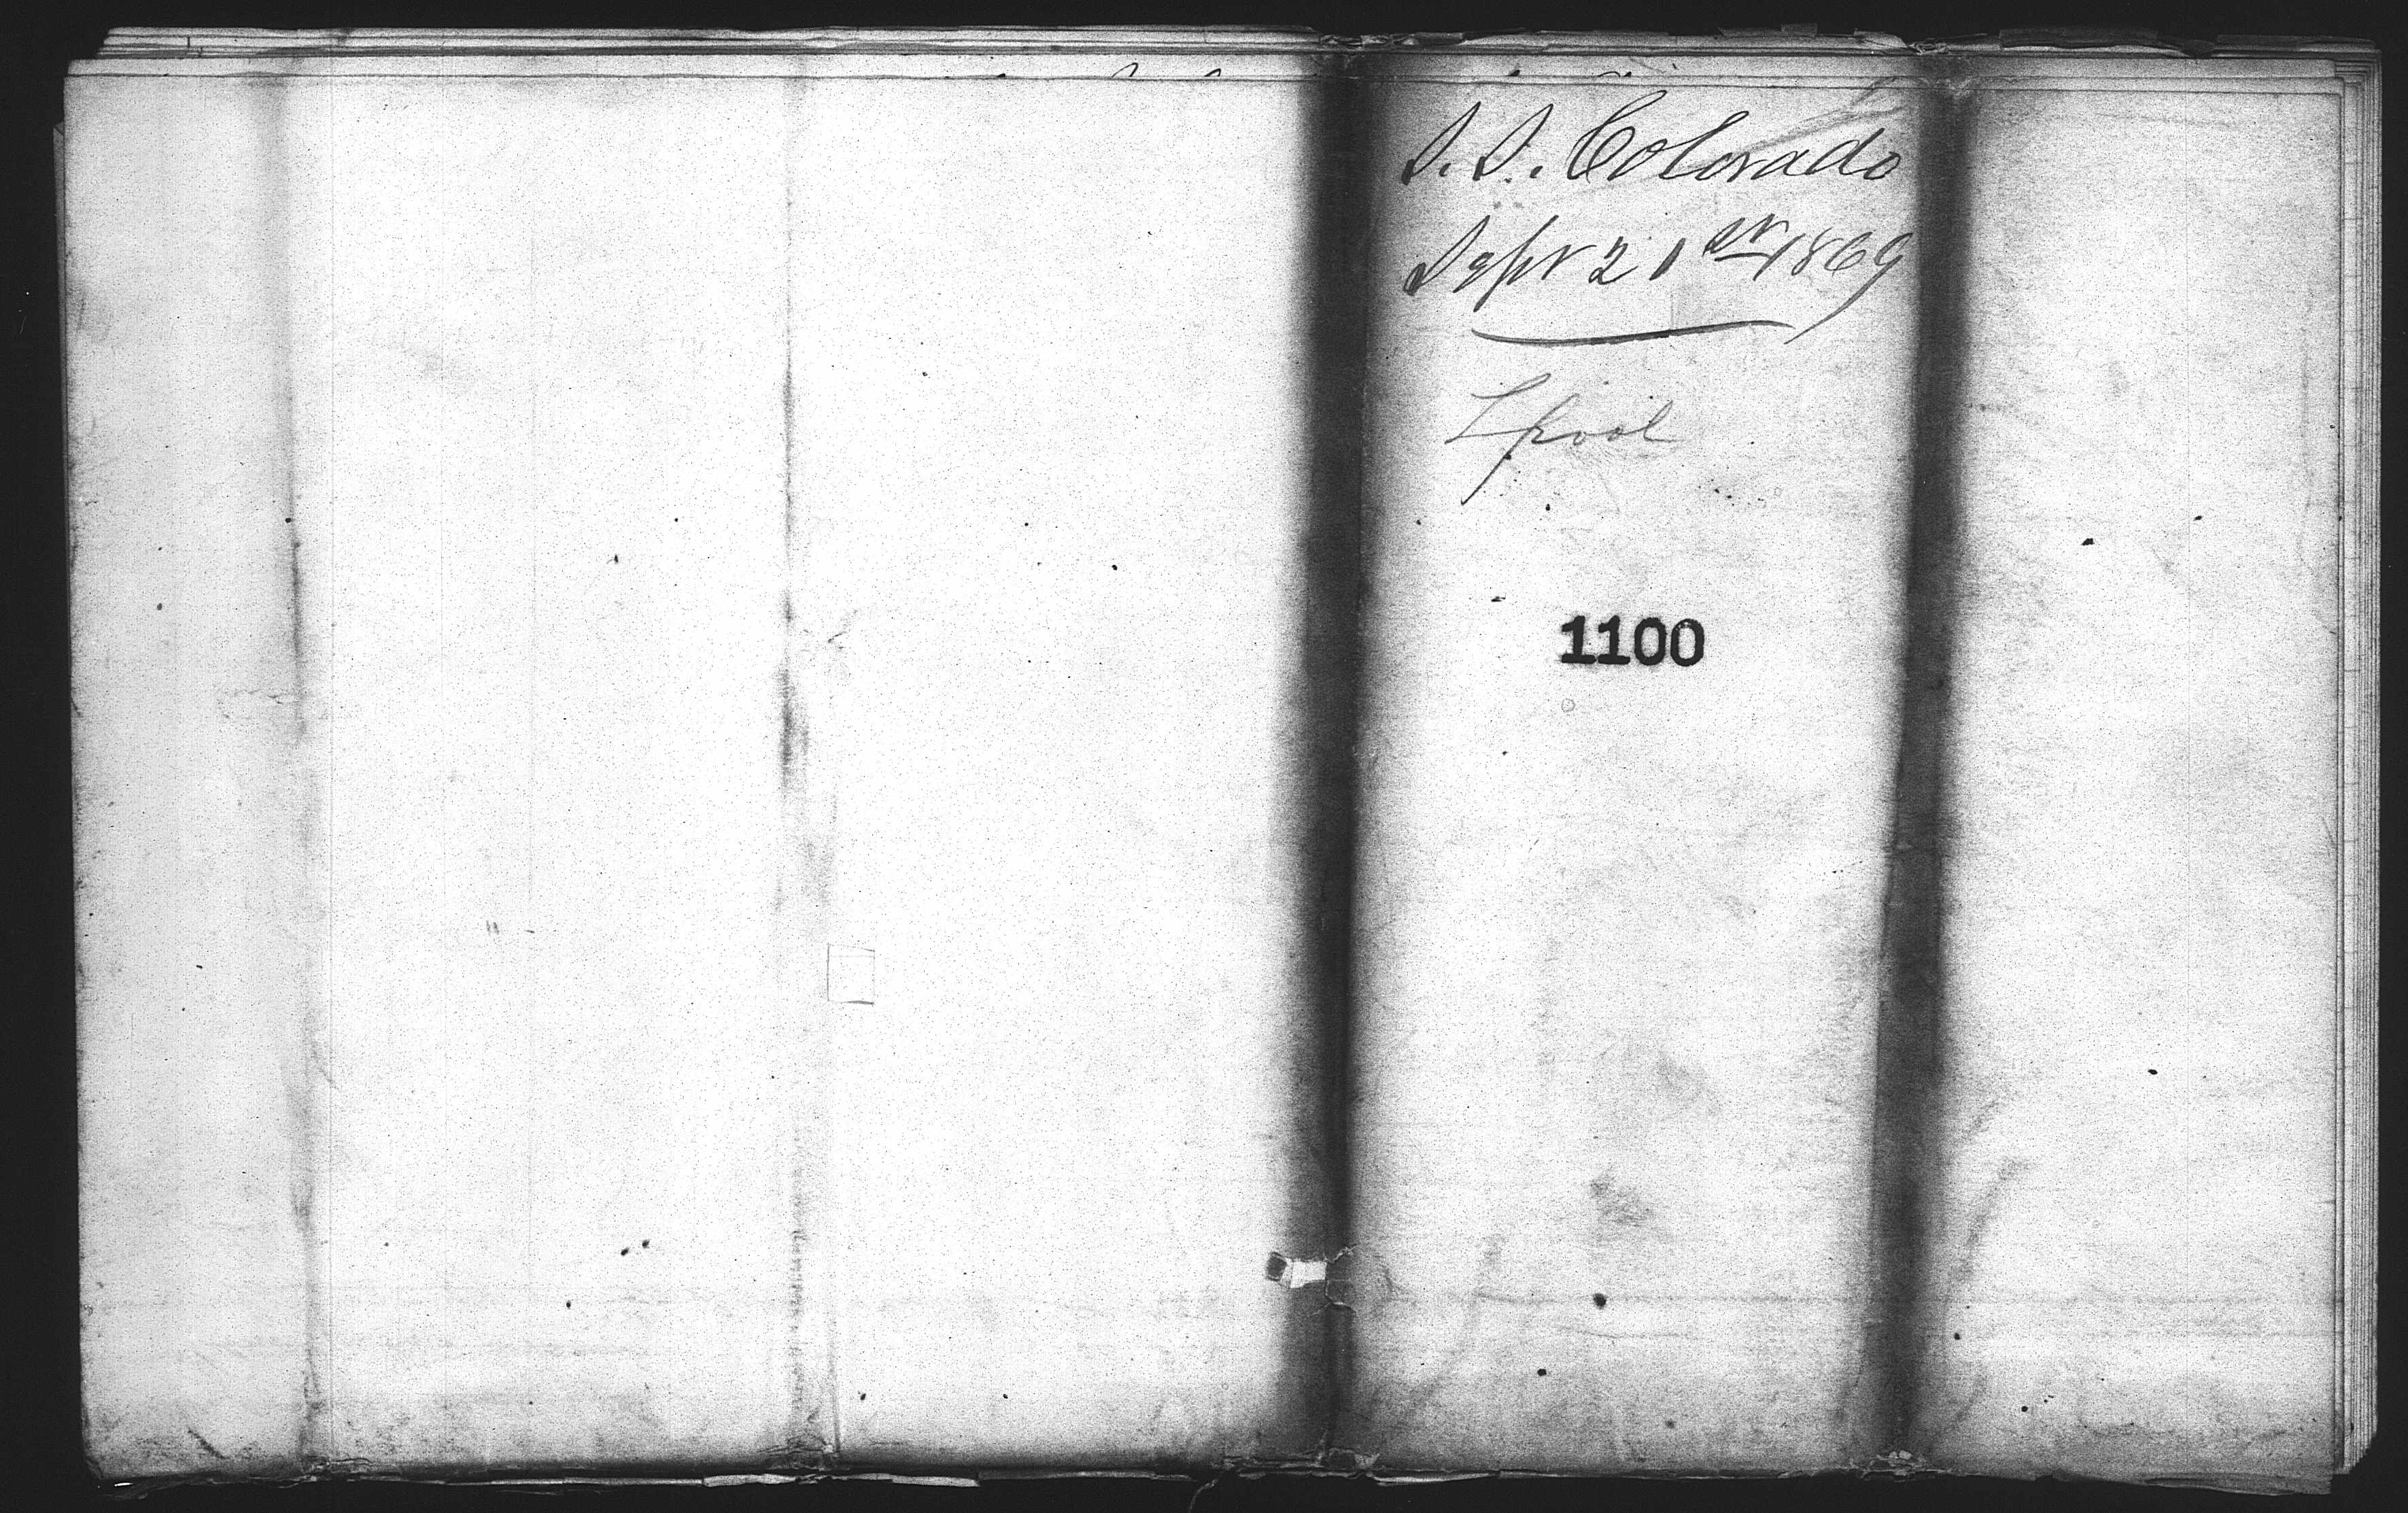 S.S. Colorado
Sept 21st 1869
Lpool
1100